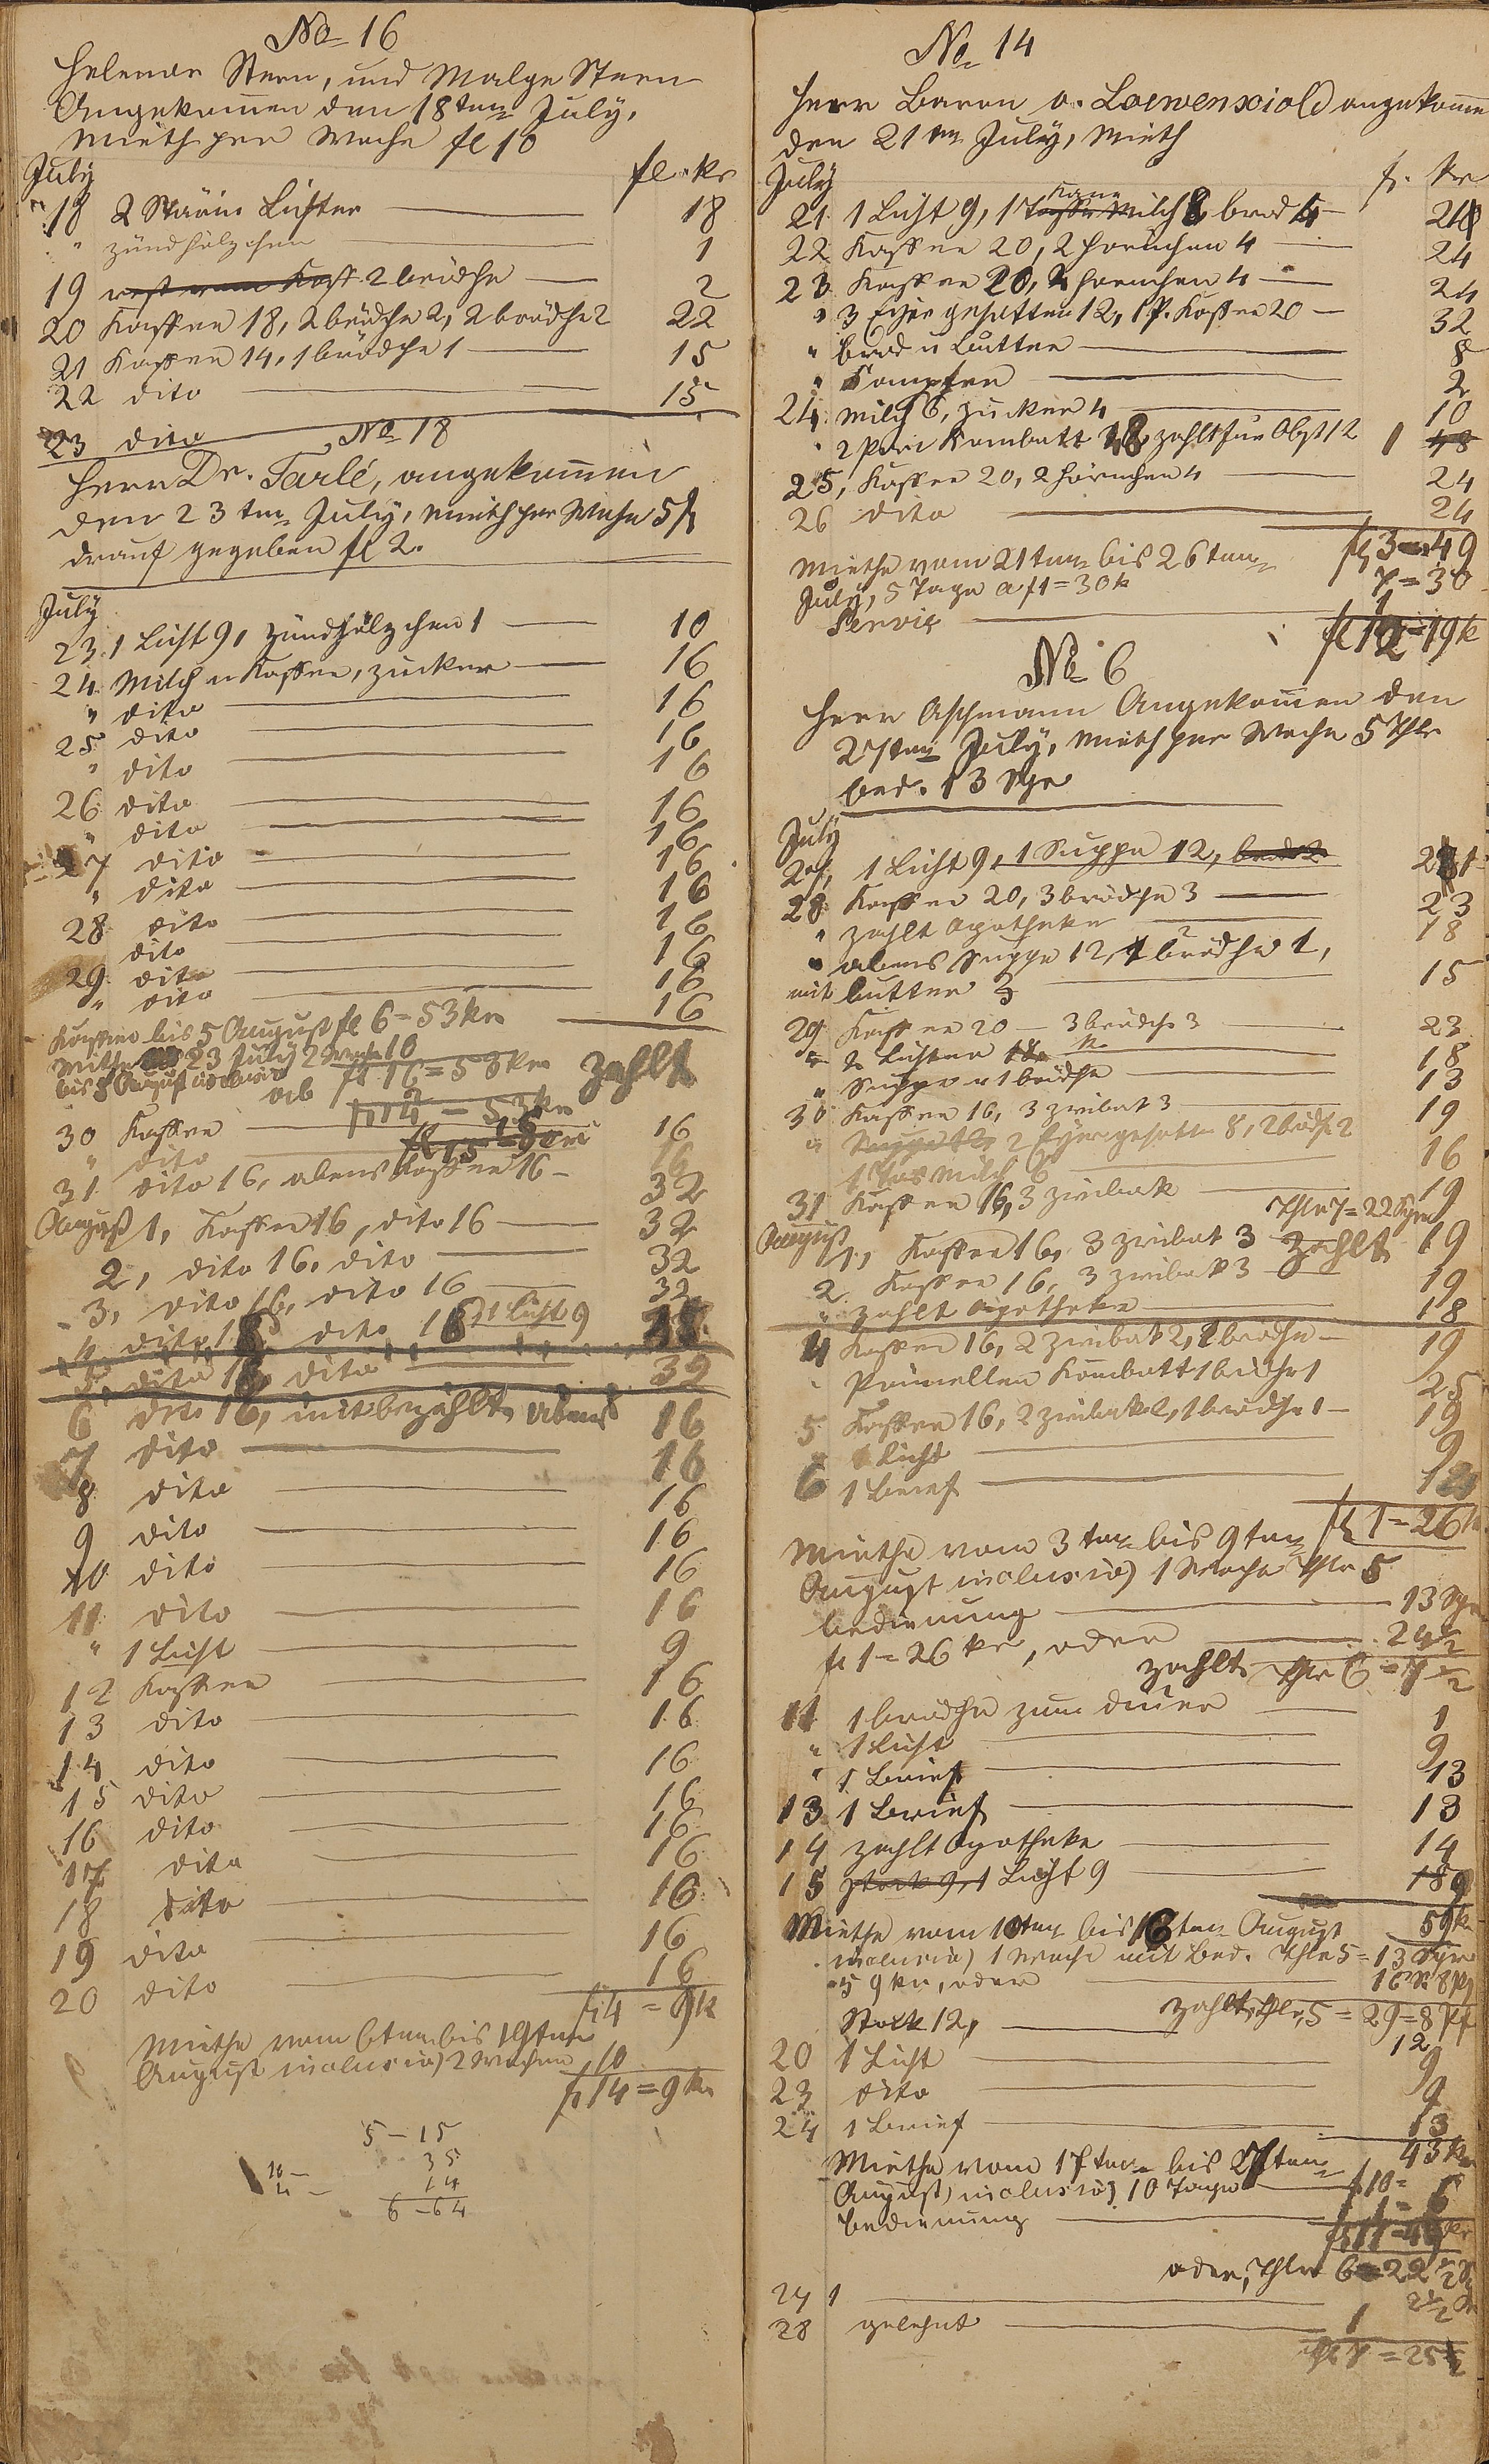 No 16
Helene Stern, und Malge Stern
Angekommen den 18ten July,
Mieth per Woche fl 10
July fl. kr
18 2 Stärin Lichter 18
" zündhölzchen 1
19 2 brödche 2
20 Kaffee 18, 2 brödche 2, 2 brödche 2 22
21 Kaffee 14, 1 brödche 1 15
22 dito 15
23 dito
No 18
Herr Dr. Tarlé, angekommen
den 23ten July, Mieth per Woche 5 fl
drauf gegeben fl 2.
July
23. 1 Licht 9, zündhölzchen 1 10
24. Milch u Kaffee, zucker 16
" dito 16
25 dito 16
" dito 16
26 dito 16
" dito 16
27 dito 16
" dito 16
28 dito 16
dito 16
29. dito 16
" dito 16
Kaffee bis 5 August fl 6 = 53 kr
Miethe 23 July 2 Woche 10
bis 5 August inclusiv fl 16 = 53 kr zahlt
ab 2
fl 14 = 53 kr
30 Kaffee 16
" dito 16
31 dito 16, abens Kaffee 16 32
August 1, Kaffee 16, dito 16 32
2, dito 16, dito 32
3, dito 16, dito 16 32
4 dito 16 dito 16 1 Licht 9
5. dito 16 dito 32
6 dito 16, mitbezahlt, abens 16
7 dito 16
8 dito 16
9 dito 16
10 dito 16
11 dito 16
" 1 Licht 9
12 Kaffee 16
13 dito 16
14 dito 16
15 dito 16
16 dito 16
17 dito 16
18 dito 16
19 dito 16
20 dito 16
fl 4 = 9 k
Miethe vom 6ten bis 19ten
August inclusiv) 2 Wochen 10
fl 14 = 9 kr
5 - 15
35
14
6 - 64
No 14
Herr Baron v. Loewenxiold angekomme
den 21ten July, Mieth
July fl. kr
21. 1 Licht 9, 1 Kane Milch 8 brod 4
22 Kaffee 20, 2 hörnchen 4 24
23 Kaffee 20, 2 hörnchen 4 24
" 3 Eyer gesotten 12, 1 P. Kaffee 20 32
" brod u Butter 8
" 2
24. Milch 6, zucker 4 10
" 2 Kombott 48 zahlt für Obst 12 1
25, Kaffee 20, 2 hörnchen 4 24
26 dito 24
fl 3 = 49
Miethe vom 21ten bis 26ten
July, 5 Tage a f 1 = 30 k 7 = 30
Servis 1
fl 12 = 19 k
No 6
Herr Aschmann Angekommen den
27ten July, Mieth per Woche 5 Thlr
bed. 13 Sgr
July
27, 1 Licht 9, 1 Suppe 12, 21
28 Kaffee 20, 3 brödche 3 23
" zahlt Apotheke 18
" abens Suppe 12, 1 brödche 1,
mit butter 3 15
29 Kaffee 20 — 3 brödche 3 23
" 2 Lichter 18
" Suppe u 1 brödche 13
30 Kaffee 16, 3 zwibak 3 19
" 2 Eyer gesotten 8, 2 brödch 2
1 Tas Milch 6 16
31 Kaffee 16, 3 zwibak 19
Thlr 7 = 22 Sgr
August 1, Kaffee 16, 3 zwibak 3 zahlt 19
2 Kaffee 16, 3 zwibak 3 19
" zahlt Apotheke 18
4 Kaffee 16, 2 zwibak 2, 1 brödche 19
" Prünellen Kombott 1 brödche 1 25
5 Kaffee 16, 2 zwibak 2, 1 brödche 1 19
" 1 Licht 9
6 1 Brief
fl 1 = 26 k
Miethe vom 3ten bis 9ten
August inclusiv) 1 Woche Thlr 5
bedienung 13 Sgr
fl 1 = 26 kr, oder 24 1/2
zahlt Thlr 6 = 7 1/2
11 1 brödche zum diner 1
" 1 Licht 9
" 1 Brief 13
13 1 Brief 13
14 zahlt Apotheke 14
15 Licht 9 9
59 k
Miethe vom 10ten bis 16ten August
inclusiv) 1 Woche mit Bed. Thlr 5 = 13 Sgr
59 kr, oder 16 8 Pf
zahlt Thlr 5 = 29 = 8 Pf
Stock 12, 12
20 1 Licht 9
23 dito 9
24 1 Brief 13
43 kr
Miethe vom 17ten bis 27ten
August) inclusiv) 10 Tage f 10 =
bedienung 1 = 6
fl 11 = 49 kr
oder, Thlr 6 = 22 1/2 Sg
24 1 2 1/2
28 gelehnt 1
Thl 7 = 25